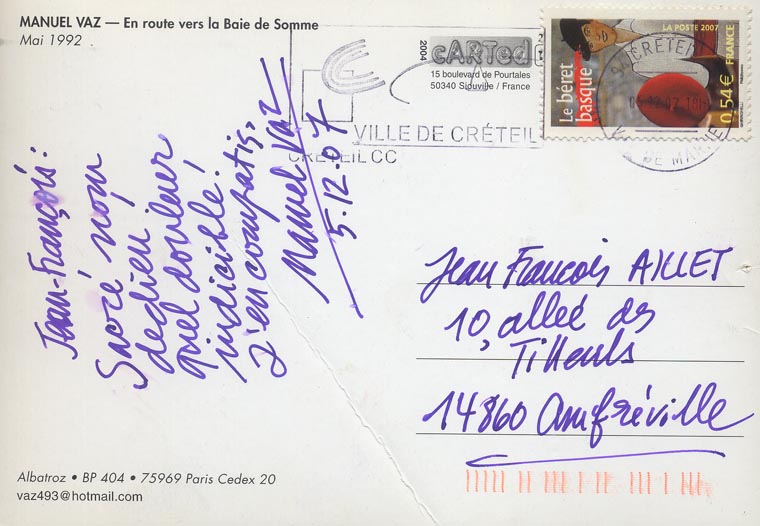 MANUEL VAZ — En route vers la Baie de Somme
Mai 1992
2004
cARTed
15 boulevard de Pourtales
50340 Siouville / France
VILLE DE CRÉTEIL
CRETEIL CC
LA POSTE 2007
FRANCE
0,54 €
Le béret
basque
CRETEIL
Jean-François :
Sacré
dedieu
quel douleur
indicible !
J'en compatis,
Manuel Vaz
5.12.07
Jean François AILLET
10, alleé des
Tilleuls
14860 Amfréville
Albatroz • BP 404 • 75969 Paris Cedex 20
vaz493@hotmail.com